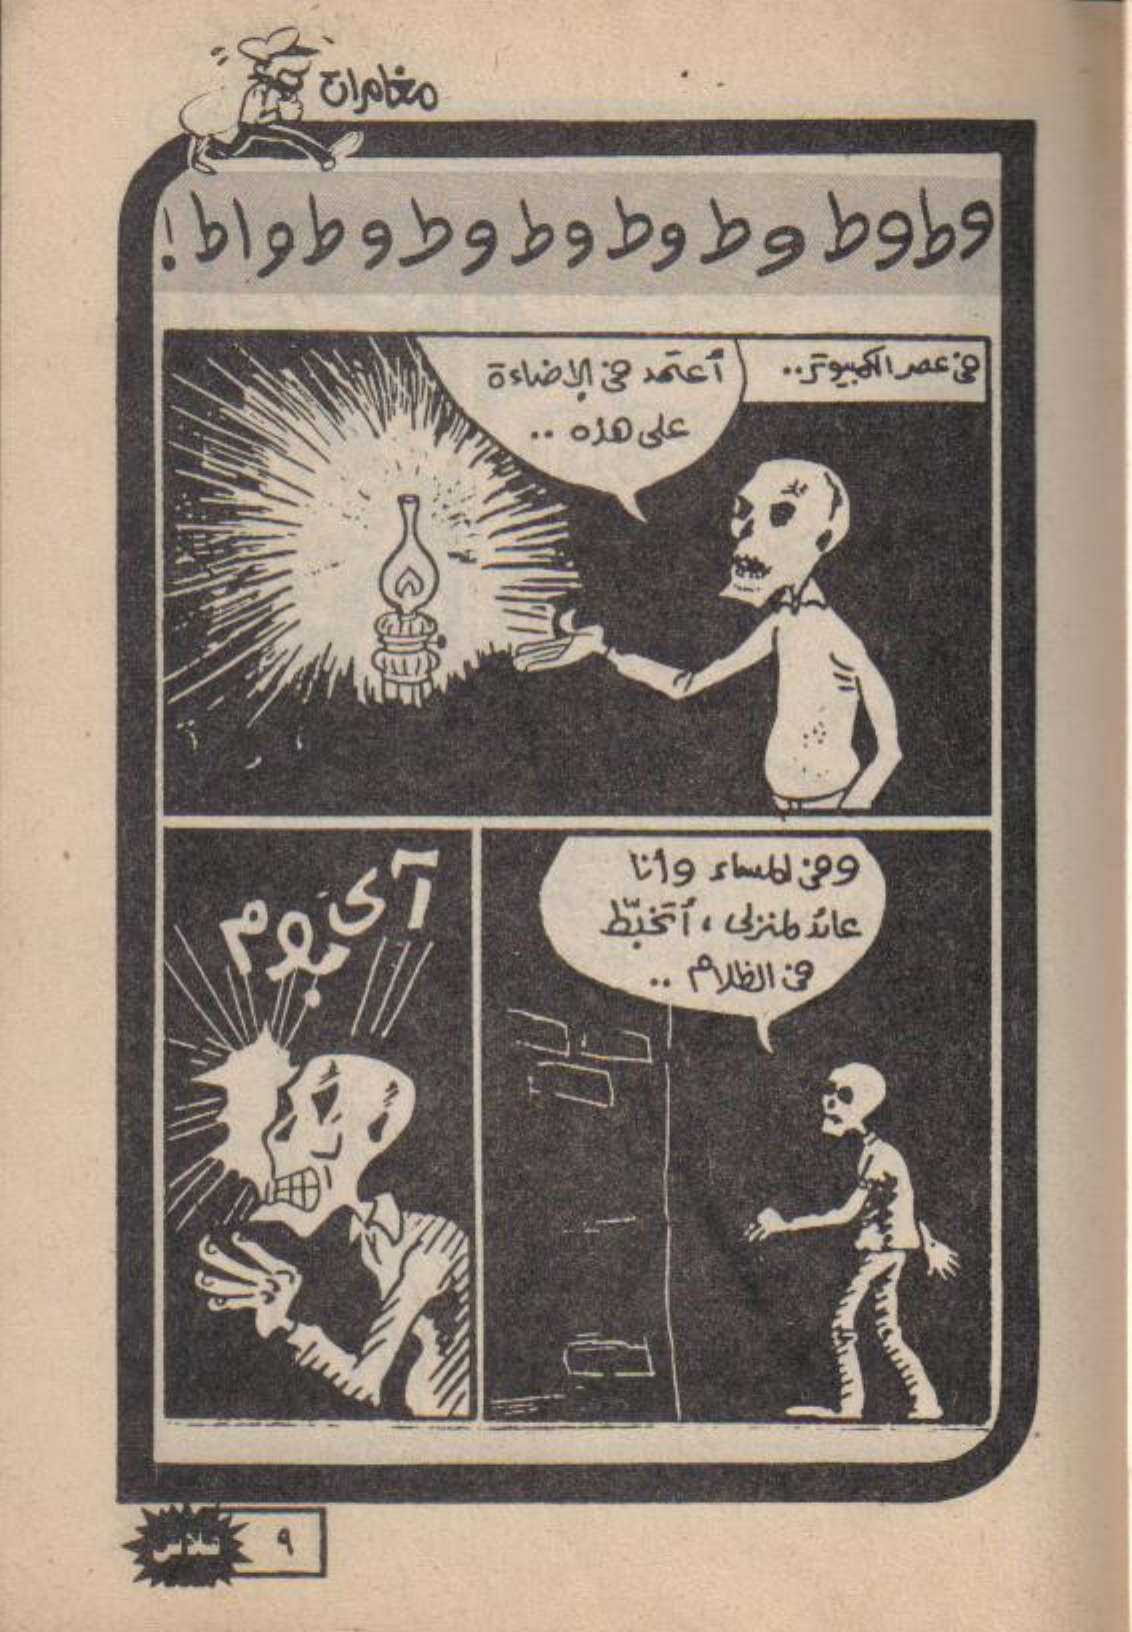 مغامرات
وطوط وطوط وطوط وطوط وطواط!
في عصر الكمبيوتر..
أعتمد في الإضاءة
على هذه ..
وفي المساء وأنا
عائد لمنزلى ، أتخبّط
في الظلام ..
آى
بَوم
فلاش
٩